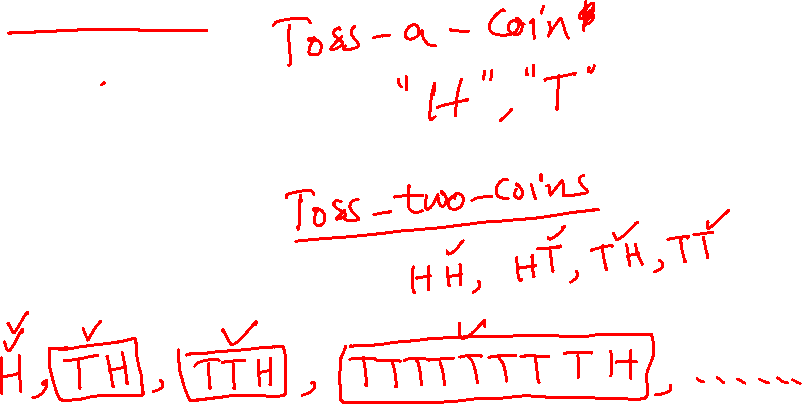 Toss-a-coin
"H", "T"
Toss-two-coins
HH, HT, TH, TT
H, TH, TTH, TTTTTTTTH, ......